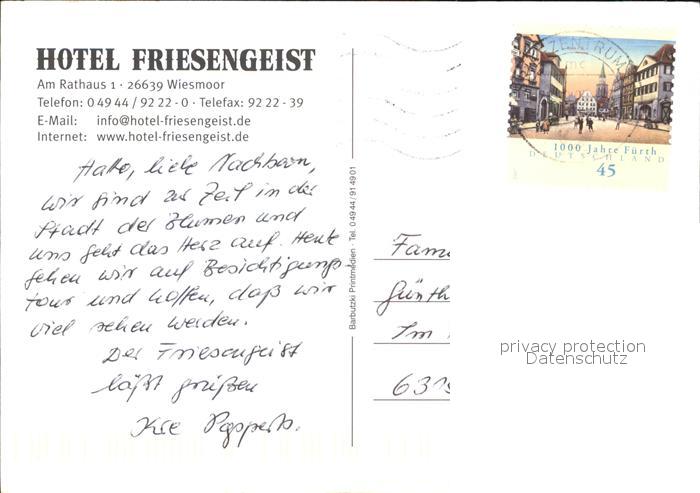 HOTEL FRIESENGEIST
Am Rathaus 1 · 26639 Wiesmoor
Telefon: 0 49 44 / 92 22 - 0 · Telefax: 92 22 - 39
E-Mail: info@hotel-friesengeist.de
Internet: www.hotel-friesengeist.de
Hallo, liebe Nachbarn,
wir sind zur Zeit in der
Stadt der Blumen und
uns geht das Herz auf. Heute
gehen wir auf Besichtigungs-
tour und hoffen, daß wir
viel sehen werden.
Der Friesengeist
läßt grüßen
Ihre Papperts.
Barbutzki Printmedien · Tel. 0 49 44 / 91 49 01
ZENTRUM
1000 Jahre Fürth
DEUTSCHLAND
45
Fam
Günth
Im
631
privacy protection
Datenschutz